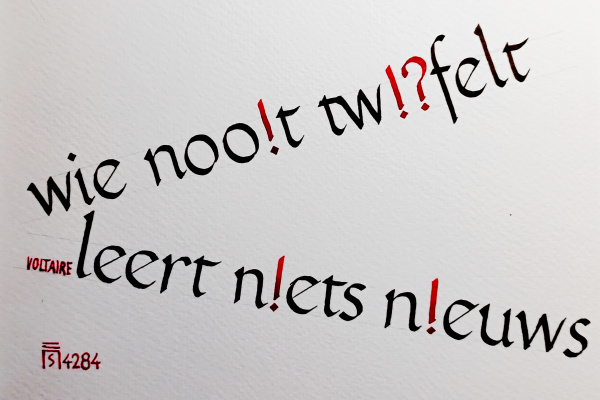 wie noo!t tw!?felt
VOLTAIRE leert n!ets n!euws
S 4284